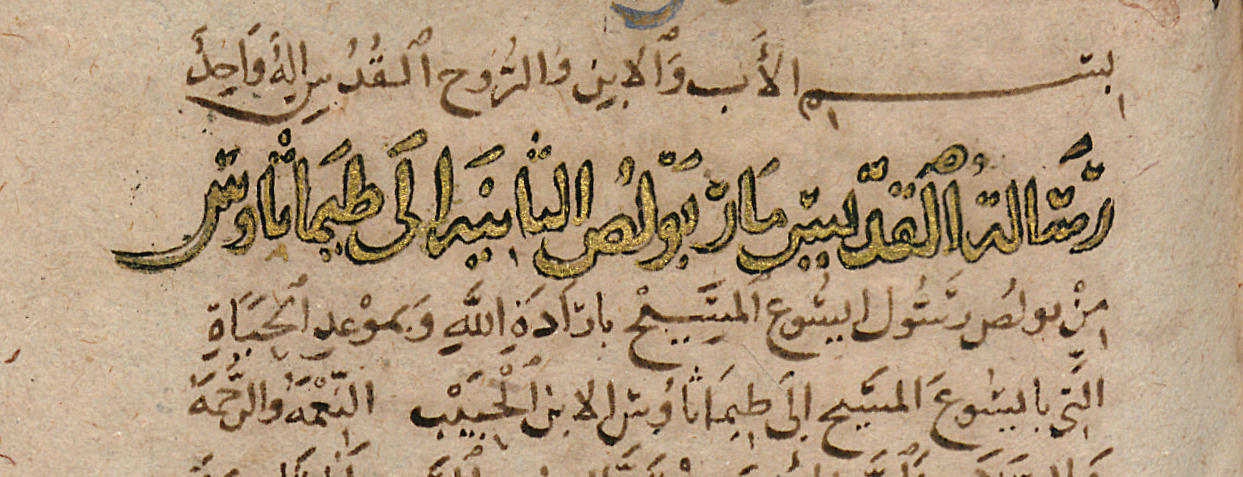 ابسم الأَب وَٱلابن وَالرُّوح ٱلقُدُس اِلهٌ وَاحِدٌ
رِسَالةُ ٱلقدّيس مَار بَوْلُص الثانيَه الَى طِيمَاثاوس
مِنْ بولُص رَسُول ايسُوع المَسِيح بارَادَةِ اللَّهِ وَبموْعدِ الحَيَاةِ
التّي بايسُوعَ المَسِيح الَى طِيمَاثاوُس الابن الْحَبيْب النِّعْمَهُ وَالرَّحْمَهُ